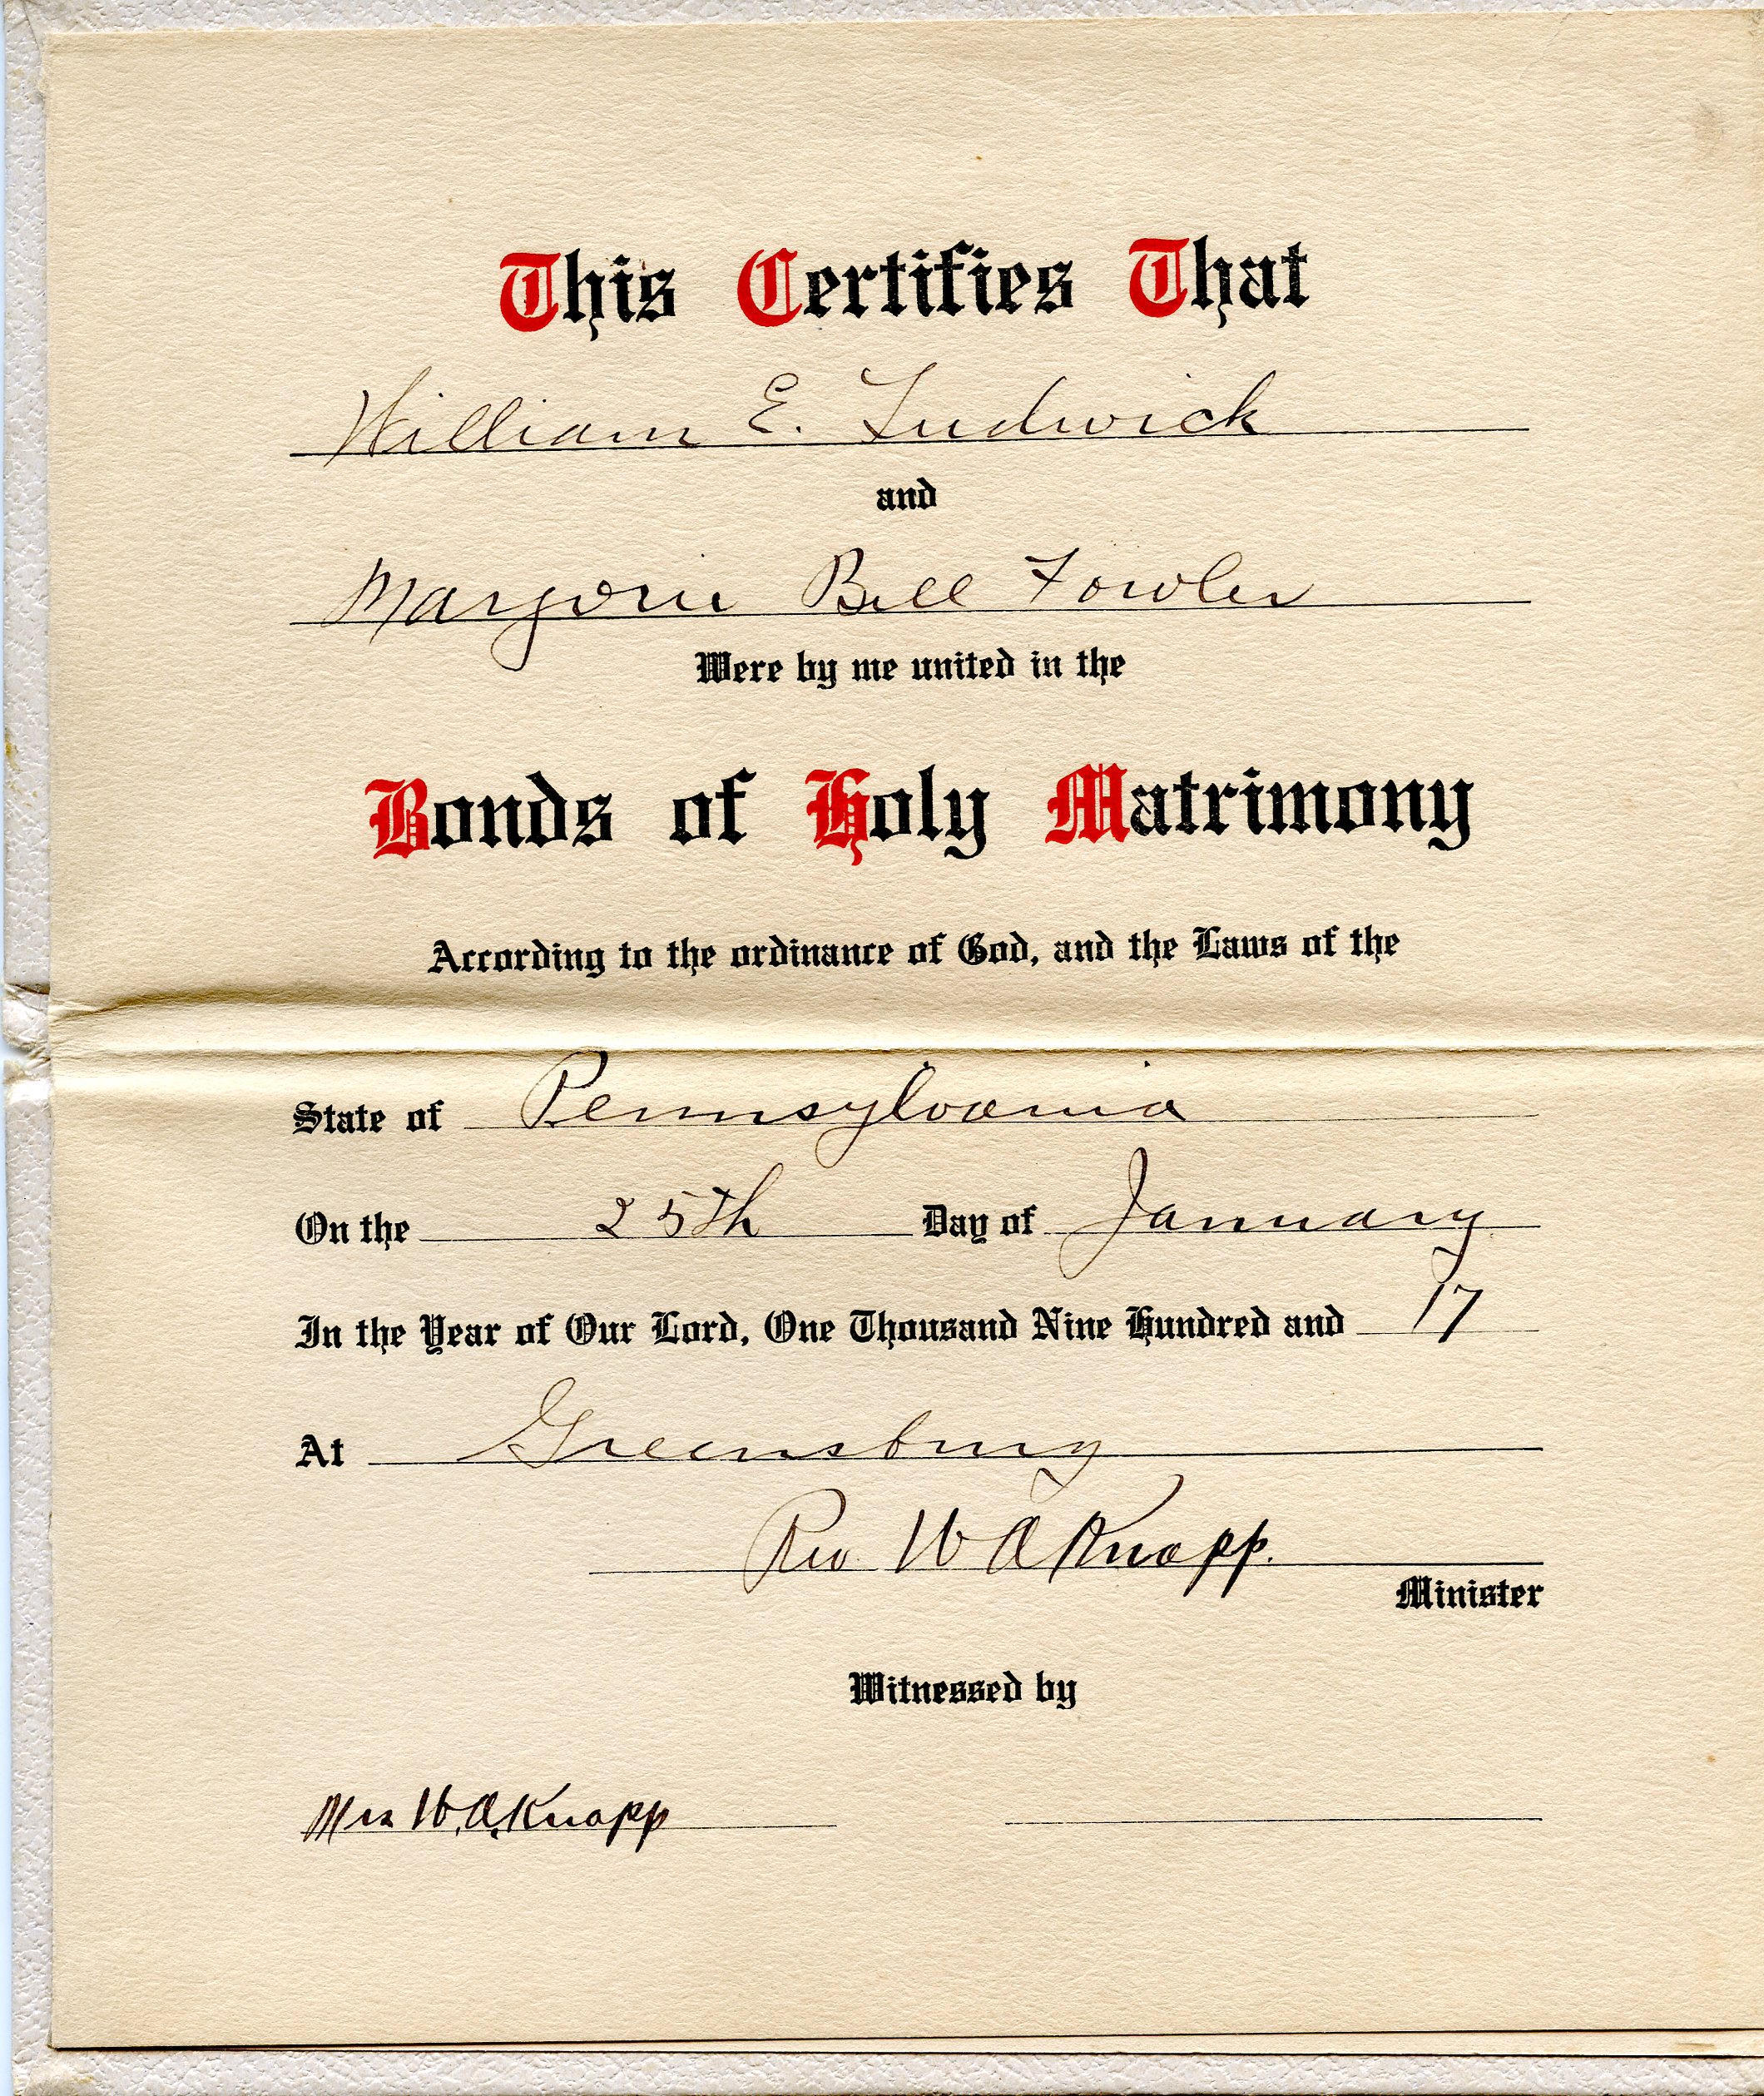 This Certifies That
William E. Ludwick
and
Marjorie Bell Fowler
Were by me united in the
Bonds of Holy Matrimony
According to the ordinance of God, and the Laws of the
State of Pennsylvania
On the 25th Day of January
In the Year of Our Lord, One Thousand Nine Hundred and 17
At Greensburg
Rev W A Knapp.
Minister
Witnessed by
Mrs W. A. Knapp